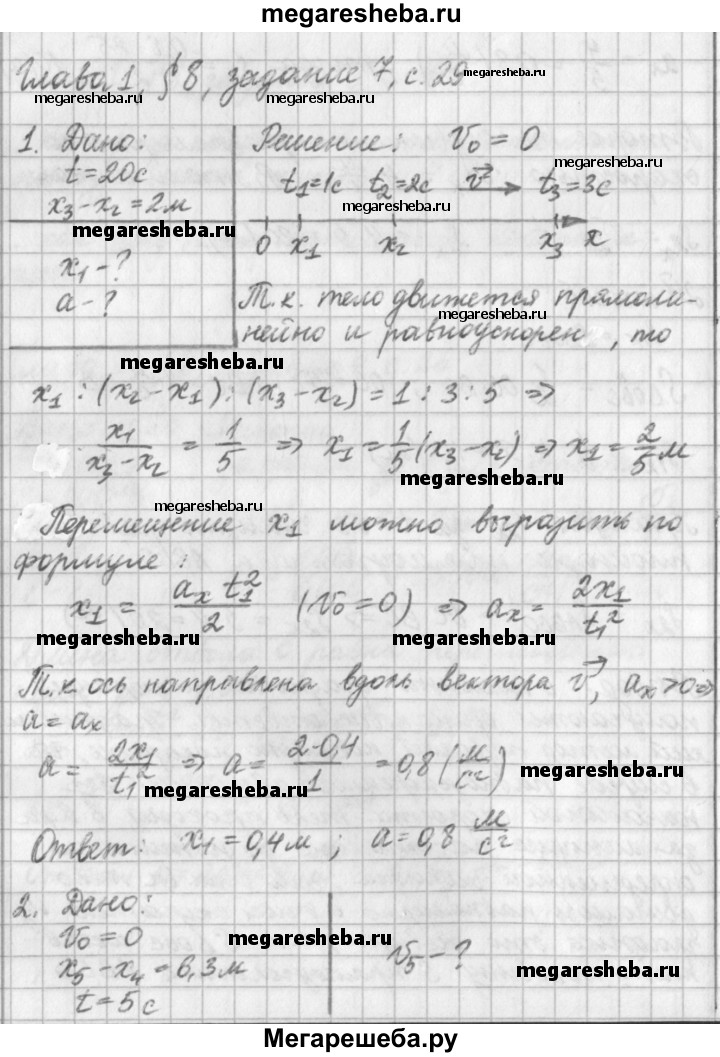 megaresheba.ru
Глава 1, § 8, задание 7, с. 29
megaresheba.ru
megaresheba.ru
megaresheba.ru
1. Дано:
t=20с
x₃-x₂=2м
megaresheba.ru
x₁-?
a-?
Решение: v₀=0
megaresheba.ru
t₁=1с t₂=2с v⃗ t₃=3с
megaresheba.ru
0 x₁ x₂ x₃ x
Т.к. тело движется прямоли-
megaresheba.ru
нейно и равноускорен , то
megaresheba.ru
x₁:(x₂-x₁):(x₃-x₂)=1:3:5 =>
x₁/(x₃-x₂) = 1/5 => x₁=1/5(x₃-x₂) => x₁=2/5 м
megaresheba.ru
megaresheba.ru
Перемещение x₁ можно выразить по
формуле:
x₁ = aₓt₁²/2 (v₀=0) => aₓ= 2x₁/t₁²
megaresheba.ru
megaresheba.ru
Т.к ось направлена вдоль вектора v⃗, aₓ>0=>
a=aₓ
a= 2x₁/t₁² => a= 2·0,4/1 =0,8(м/с²)
megaresheba.ru
megaresheba.ru
Ответ: x₁=0,4м; a=0,8 м/с²
2. Дано:
v₀=0
x₅-x₄=6,3м
t=5с
megaresheba.ru
v₅-?
megaresheba.ru
Мегарешеба.ру